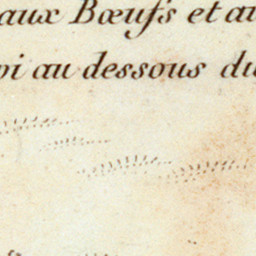 aux Bœufs et au
oi au dessous du